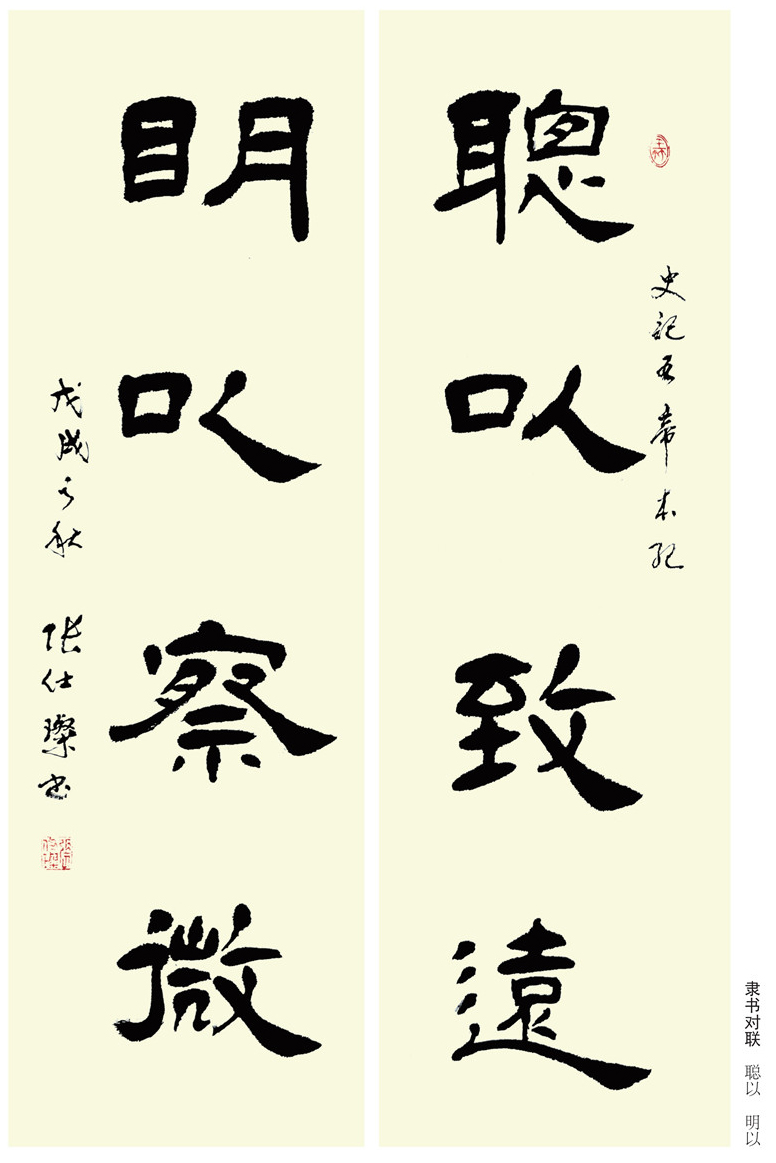 聰以致遠
史記五帝本紀
明以察微
戊戌之秋 張仕璨书
隶书对联 聪以 明以